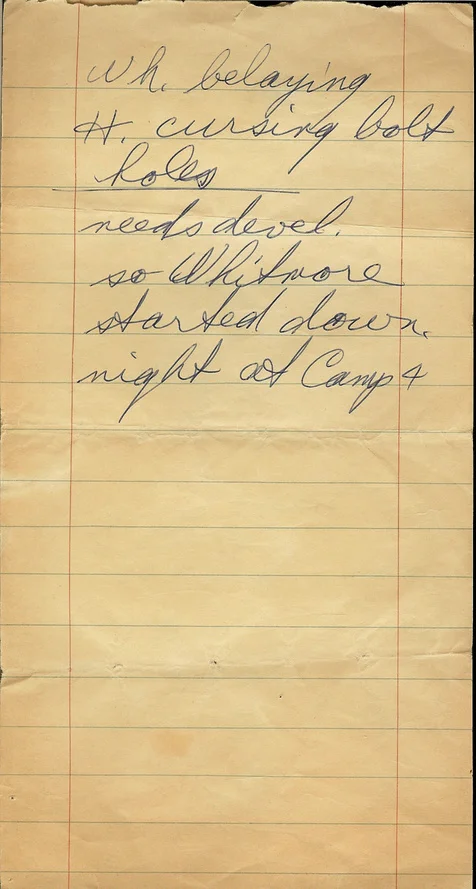 Wh. belaying
H. cursing bolt
holes
needs devel.
so Whitmore
started down.
night at Camp 4